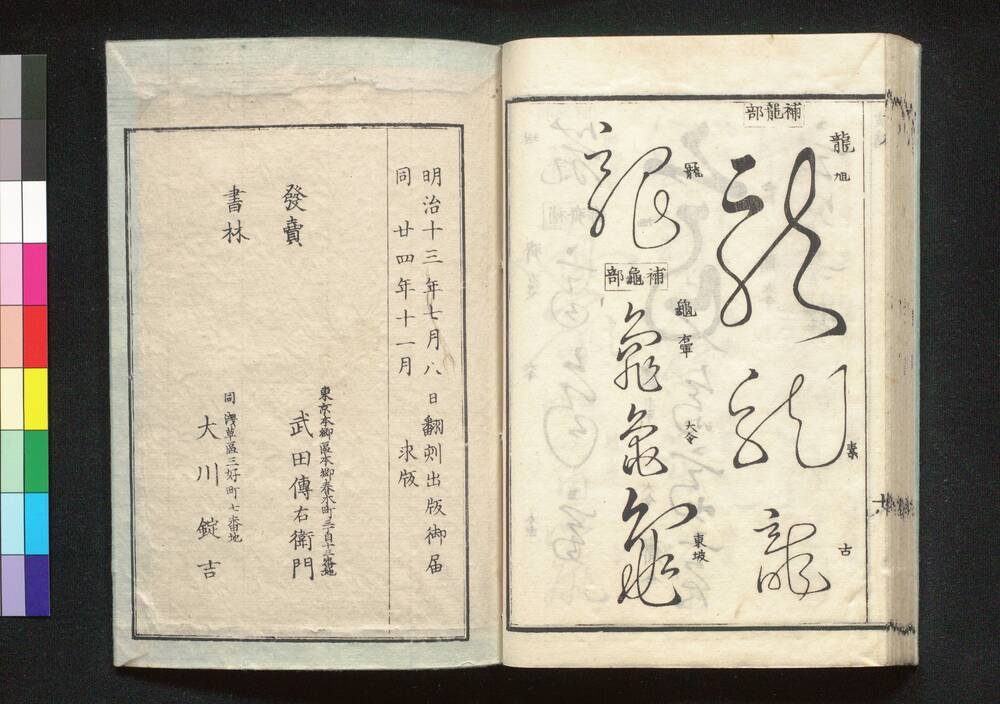 補龍部
龍
旭
素
古
補龜部
龜
右軍
大令
東坡
明治十三年七月八日翻刻出版御届
同 廿四年十一月 求版
發賣
書林
東京本郷區本郷春木町三百十三番地
武田傳右衛門
同 淺草區三好町七番地
大川錠吉